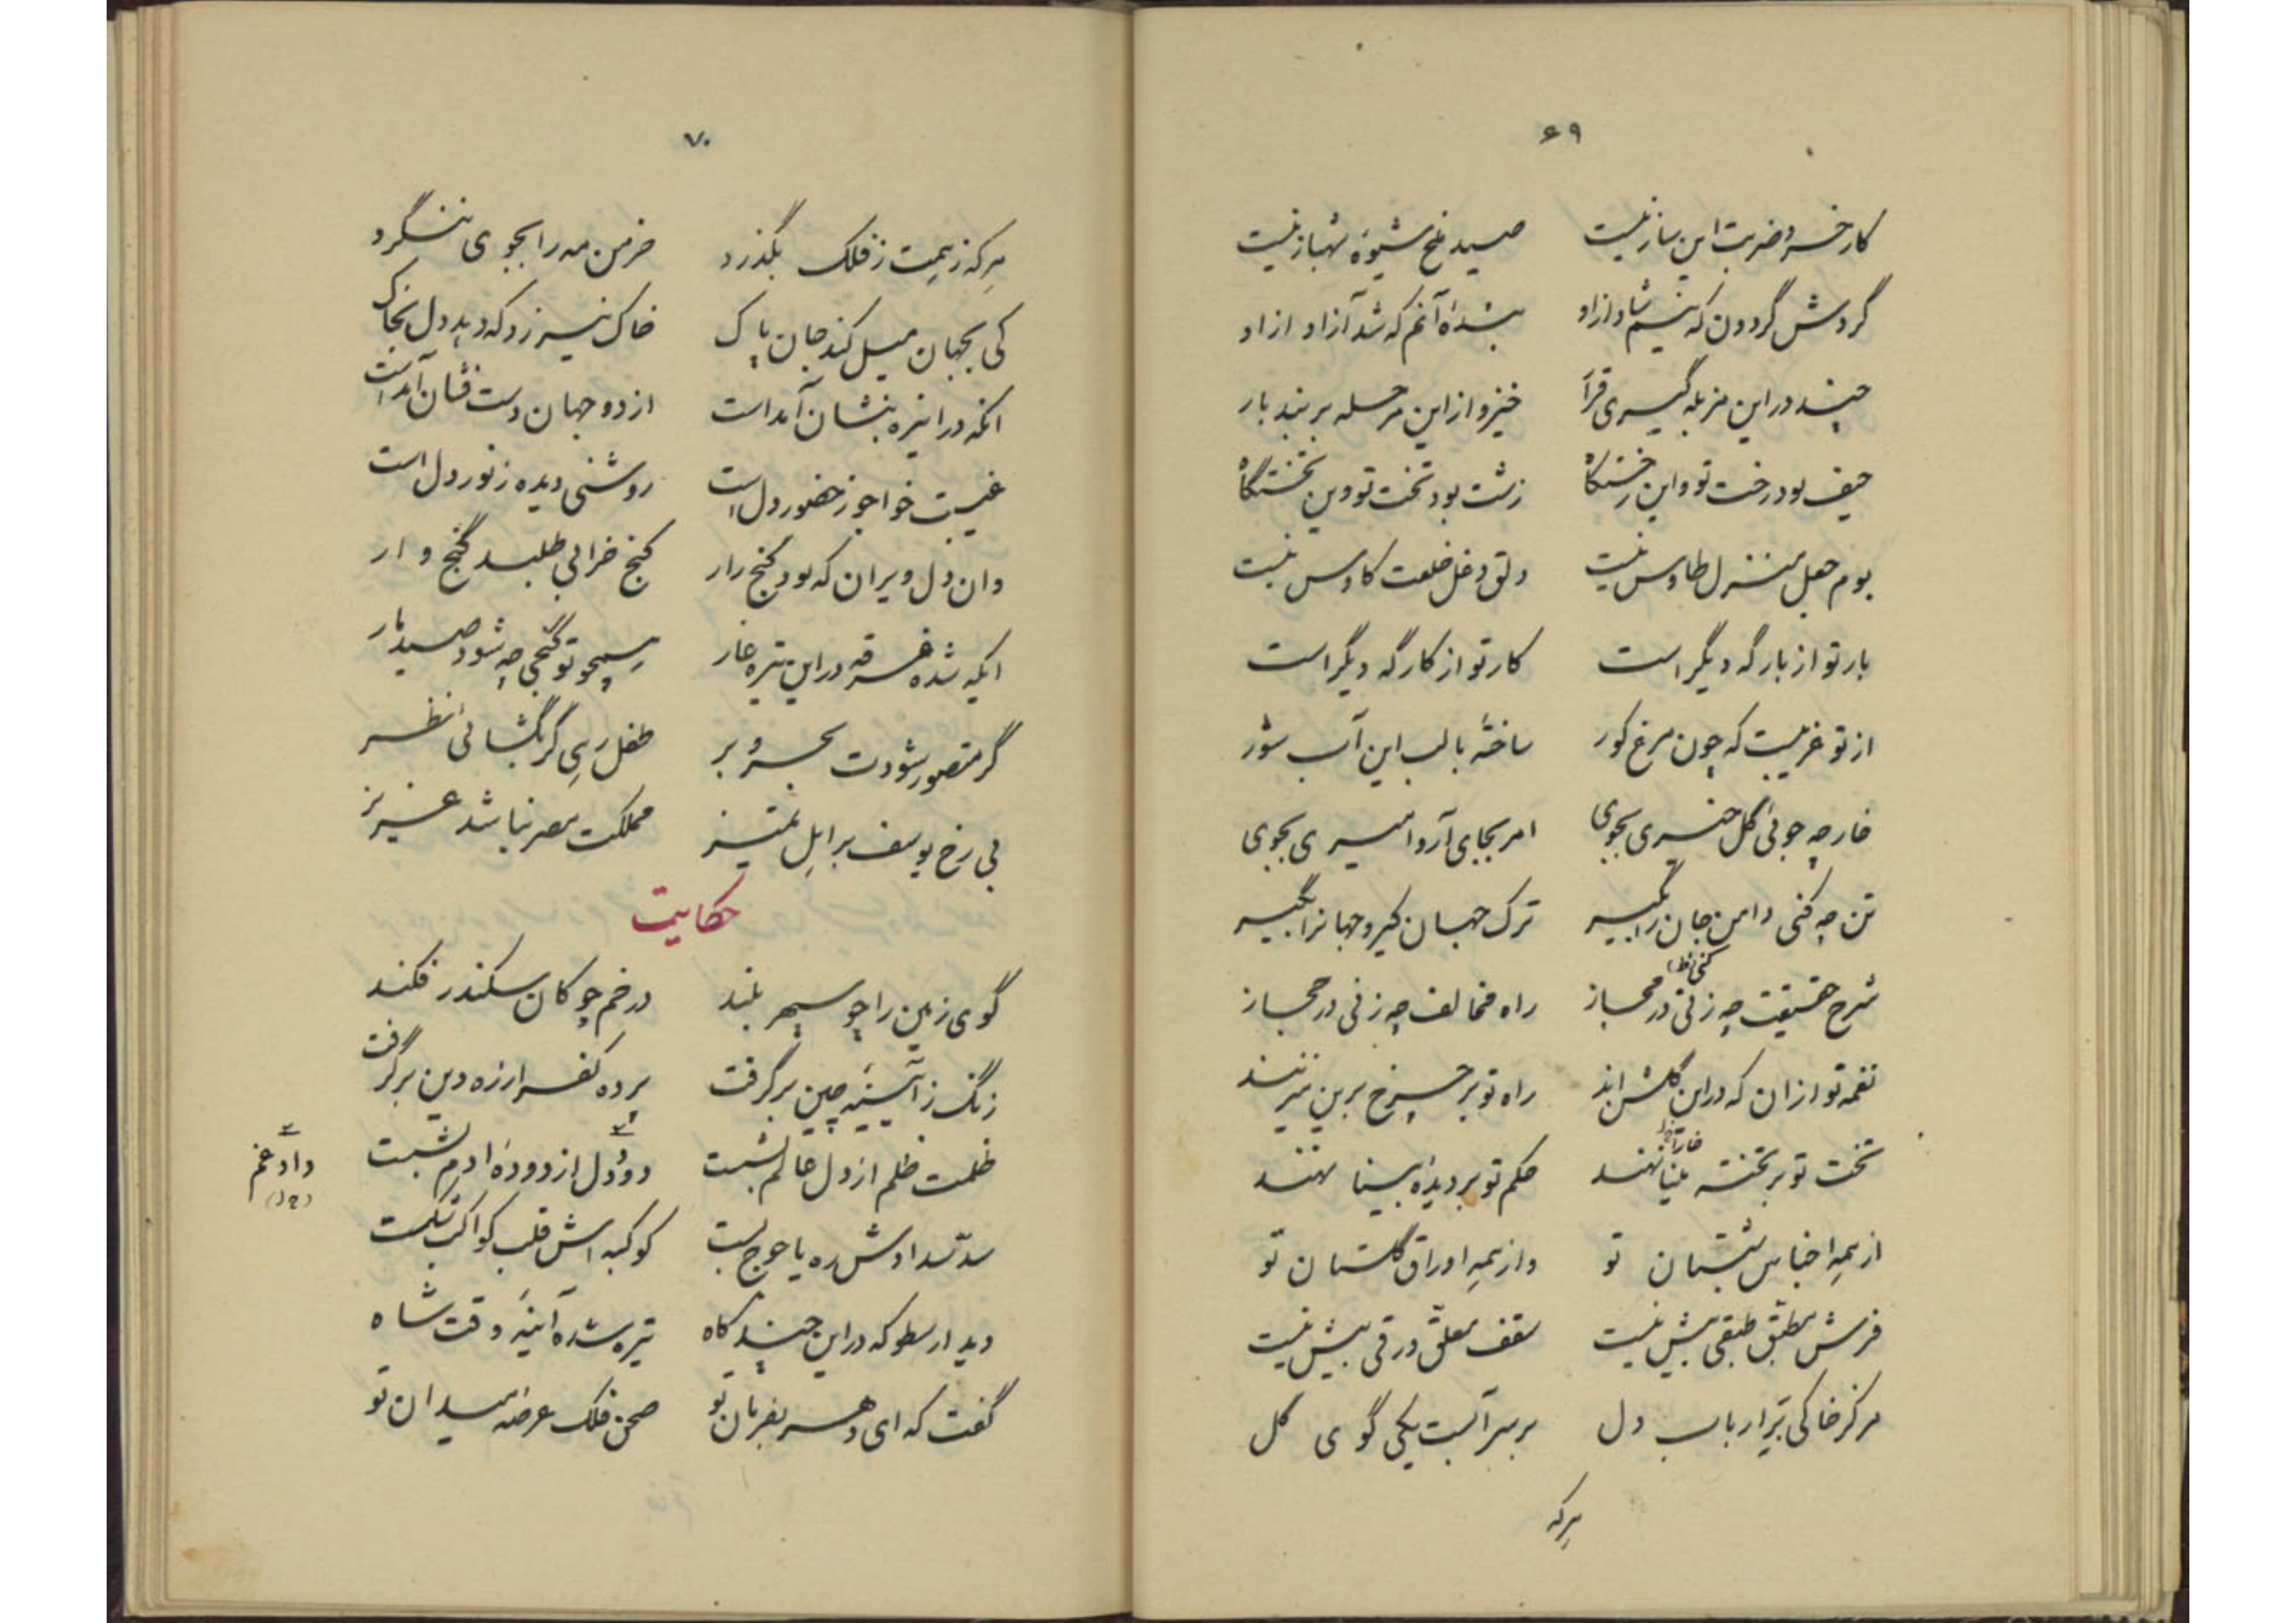 ۶۹
کار خسرو ضربت این ساز نیست صید ملخ شیوهٔ شهباز نیست
گردش گردون که نیم شاد ازاو بندهٔ آنم که شد آزاد ازاو
چند در این مزبله گیری قرار خیز و از این مرحله بربند بار
حیف بود رخت تو و این رختگاه زشت بود تخت تو وین تختگاه
بوم جعل منزل طاوس نیست دلق دغل خلعت کاوس نیست
بار تو از بارگه دیگر است کار تو از کارگه دیگر است
از تو غریبست که چون مرغ کور ساختهٔ با لب این آب شور
خار چه جوئی گل حمری بجوی امر بجای آر و امیری بجوی
تن چه کنی دامن جان را بگیر ترک جهان گیر و جهانرا بگیر
کنی
شرح حقیقت چه زنی در مجاز راه مخالف چه زنی در حجاز
نغمه تو ازان که در این گلشن اند راه تو بر چرخ برین میزنند
تخت تو بر تخته مینا نهند حکم تو بر دیدهٔ بینا نهند
از همه اجناس شبستان تو واز همه اوراق گلستان تو
فرش مطبق طبقی بیش نیست سقف معلق ورقی بیش نیست
مرکز خاکی بر ارباب دل بر سر آبست یکی گوی گل
هرکه
۷۰
هرکه ز همت ز فلک بگذرد خرمن مه را بجوی ننگرد
کی بجهان میل کند جان پاک خاک نیرزد که دهد دل بخاک
انکه در اینره بنشان آمداست از دو جهان دست فشان آمداست
غیبت خواجو ز حضور دل است روشنی دیده ز نور دل است
وان دل ویران که بود گنج رار کنج خرابی طلبد گنج وار
ایکه شده غرقه در این تیره غار همچو تو گنجی چه شود صید مار
گر متصور شودت بحر و بر طفل رهی گر بگشائی نظر
بی رخ یوسف بر اهل تمیز مملکت مصر نباشد عزیز
حکایت
گوی زمین را چو سپهر بلند در خم چوکان سکندر فکند
زنگ ز آئینهٔ چین برگرفت پرده کفر ازره دین برگرفت
ظلمت ظلم از دل عالم بشست دود دل از دودهٔ ادم بشست
داد غم
سد سدادش ره یاجوج بست کوکبه اش قلب کواکب شکست
دید ارسطو که در این چند گاه تیره شده آینهٔ وقت شاه
گفت که ای دهر بفرمان تو صحن فلک عرصه میدان تو